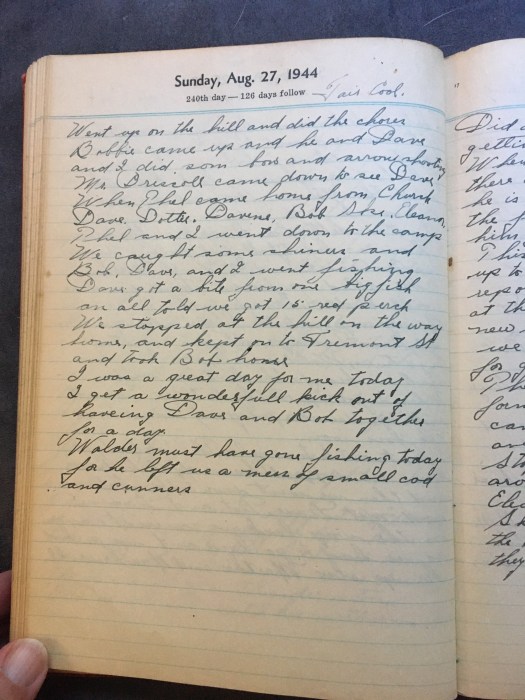 Sunday, Aug. 27, 1944
240th day — 126 days follow Fair Cool.
Went up on the hill and did the chores
Bobbie came up and he and Dave
and I did som bow and arrow shooting
Mr Driscoll came down to see Dave
When Ethel came home from Church
Dave. Dottie. Davene, Bob Eleanor
Ethel and I went down to the camp
We caught some shiners and
Bob, Dave, and I went fishing
Dave got a bite from one big fish
an all told we got 15 red perch
We stopped at the hill on the way
home, and kept on to Tremont St
and took Bob home
I was a great day for me today
I get a wonderfull kick out of
haveing Dave and Bob together
for a day
Walder must have gone fishing today
for he left us a mess of small cod
and cunners
Did
getti
When
there
he is
the f
him
This
up to
repo
at th
new
we
for g
Th
foun
can
an
Sto
aro
Elea
Sh
the
they